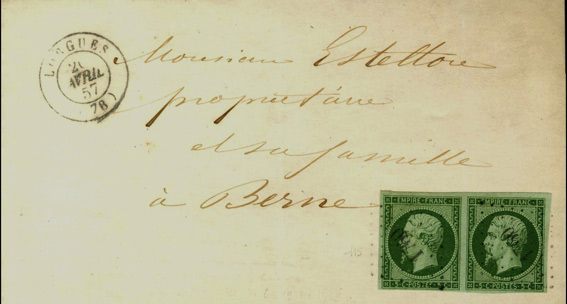 LONGUES
AVRIL
57
(76)
Monsieur Estellon
propriétaire
et sa famille
à Berne
EMPIRE FRANC. EMPIRE FRANC.
5 C POSTES 5 C 5 C POSTES 5 C